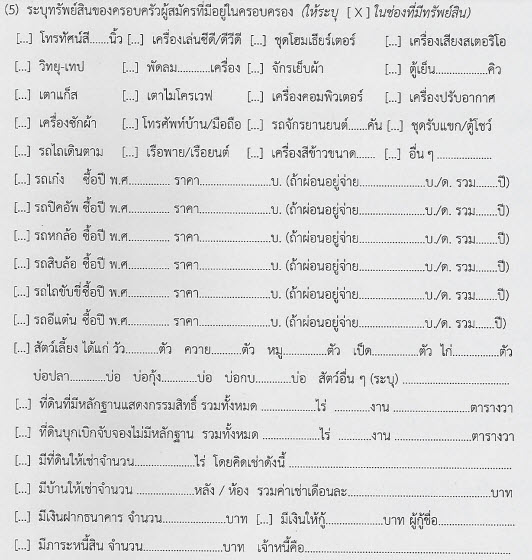 (5) ระบุทรัพย์สินของครอบครัวผู้สมัครที่มีอยู่ในครอบครอง (ให้ระบุ [ X ] ในช่องที่มีทรัพย์สิน)
[...] โทรทัศน์สี.....นิ้ว [...] เครื่องเล่นซีดี/ดีวีดี [...] ชุดโฮมเธียร์เตอร์ [...] เครื่องเสียงสเตอริโอ
[...] วิทยุ-เทป [...] พัดลม...........เครื่อง [...] จักรเย็บผ้า [...] ตู้เย็น.................คิว
[...] เตาแก็ส [...] เตาไมโครเวฟ [...] เครื่องคอมพิวเตอร์ [...] เครื่องปรับอากาศ
[...] เครื่องซักผ้า [...] โทรศัพท์บ้าน/มือถือ [...] รถจักรยานยนต์......คัน [...] ชุดรับแขก/ตู้โชว์
[...] รถไถเดินตาม [...] เรือพาย/เรือยนต์ [...] เครื่องสีข้าวขนาด...... [...] อื่น ๆ ..................
[...] รถเก๋ง ซื้อปี พ.ศ.............. ราคา........................บ. (ถ้าผ่อนอยู่จ่าย......................บ./ด. รวม.......ปี)
[...] รถปิคอัพ ซื้อปี พ.ศ.............. ราคา........................บ. (ถ้าผ่อนอยู่จ่าย......................บ./ด. รวม.......ปี)
[...] รถหกล้อ ซื้อปี พ.ศ.............. ราคา........................บ. (ถ้าผ่อนอยู่จ่าย......................บ./ด. รวม.......ปี)
[...] รถสิบล้อ ซื้อปี พ.ศ.............. ราคา........................บ. (ถ้าผ่อนอยู่จ่าย......................บ./ด. รวม.......ปี)
[...] รถไถขับขี่ซื้อปี พ.ศ.............. ราคา........................บ. (ถ้าผ่อนอยู่จ่าย......................บ./ด. รวม.......ปี)
[...] รถอีแต๋น ซื้อปี พ.ศ.............. ราคา........................บ. (ถ้าผ่อนอยู่จ่าย......................บ./ด. รวม......ปี)
[...] สัตว์เลี้ยง ได้แก่ วัว..........ตัว ควาย..........ตัว หมู..............ตัว เป็ด...............ตัว ไก่...............ตัว
บ่อปลา............บ่อ บ่อกุ้ง............บ่อ บ่อกบ............บ่อ สัตว์อื่น ๆ (ระบุ) ..................................
[...] ที่ดินที่มีหลักฐานแสดงกรรมสิทธิ์ รวมทั้งหมด ..................ไร่ ..............งาน .........................ตารางวา
[...] ที่ดินบุกเบิกจับจองไม่มีหลักฐาน รวมทั้งหมด ......................ไร่ ...........งาน .........................ตารางวา
[...] มีที่ดินให้เช่าจำนวน....................ไร่ โดยคิดเช่าดังนี้ ......................................................................
[...] มีบ้านให้เช่าจำนวน ...................หลัง / ห้อง รวมค่าเช่าเดือนละ..............................................บาท
[...] มีเงินฝากธนาคาร จำนวน.....................บาท [...] มีเงินให้กู้..................บาท ผู้กู้ชื่อ.........................
[...] มีภาระหนี้สิน จำนวน...........................บาท เจ้าหนี้คือ...............................................................